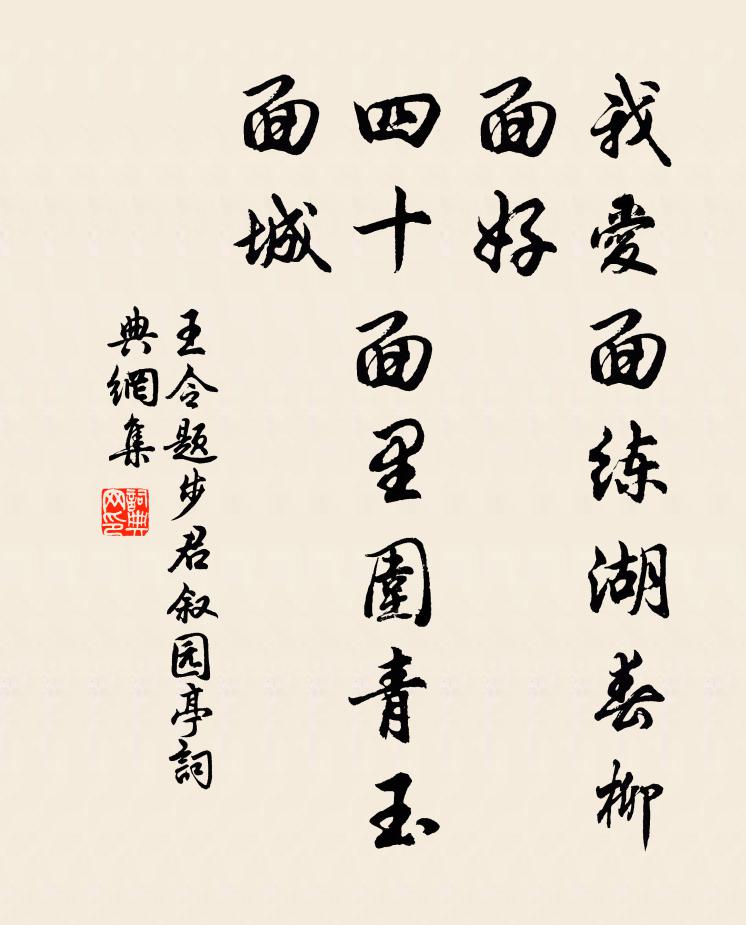 我愛面練湖春柳
面好
四十面里圍青玉
面城
王令題步君叙园亭詞
典網集
詞典网印